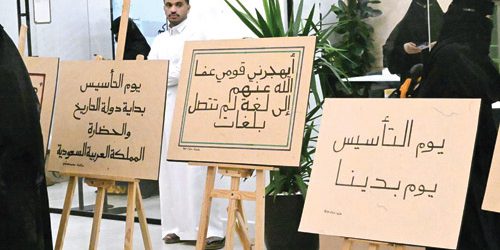 يوم التأسيس
بداية دولة التاريخ
والحضارة
المملكة العربية السعودية
أيهجرني قومي عفا
الله عنهم
إلى لغة لم تتصل
بلغات
يوم التأسيس
يوم بدينا